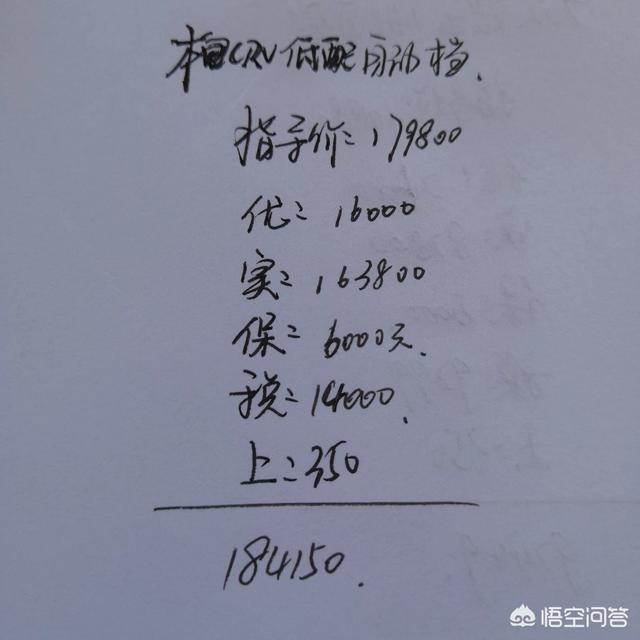 本田CRV低配自动档.
指导价:179800
优:16000
实:163800
保:6000元.
税:14000.
上:350
184150.
悟空问答